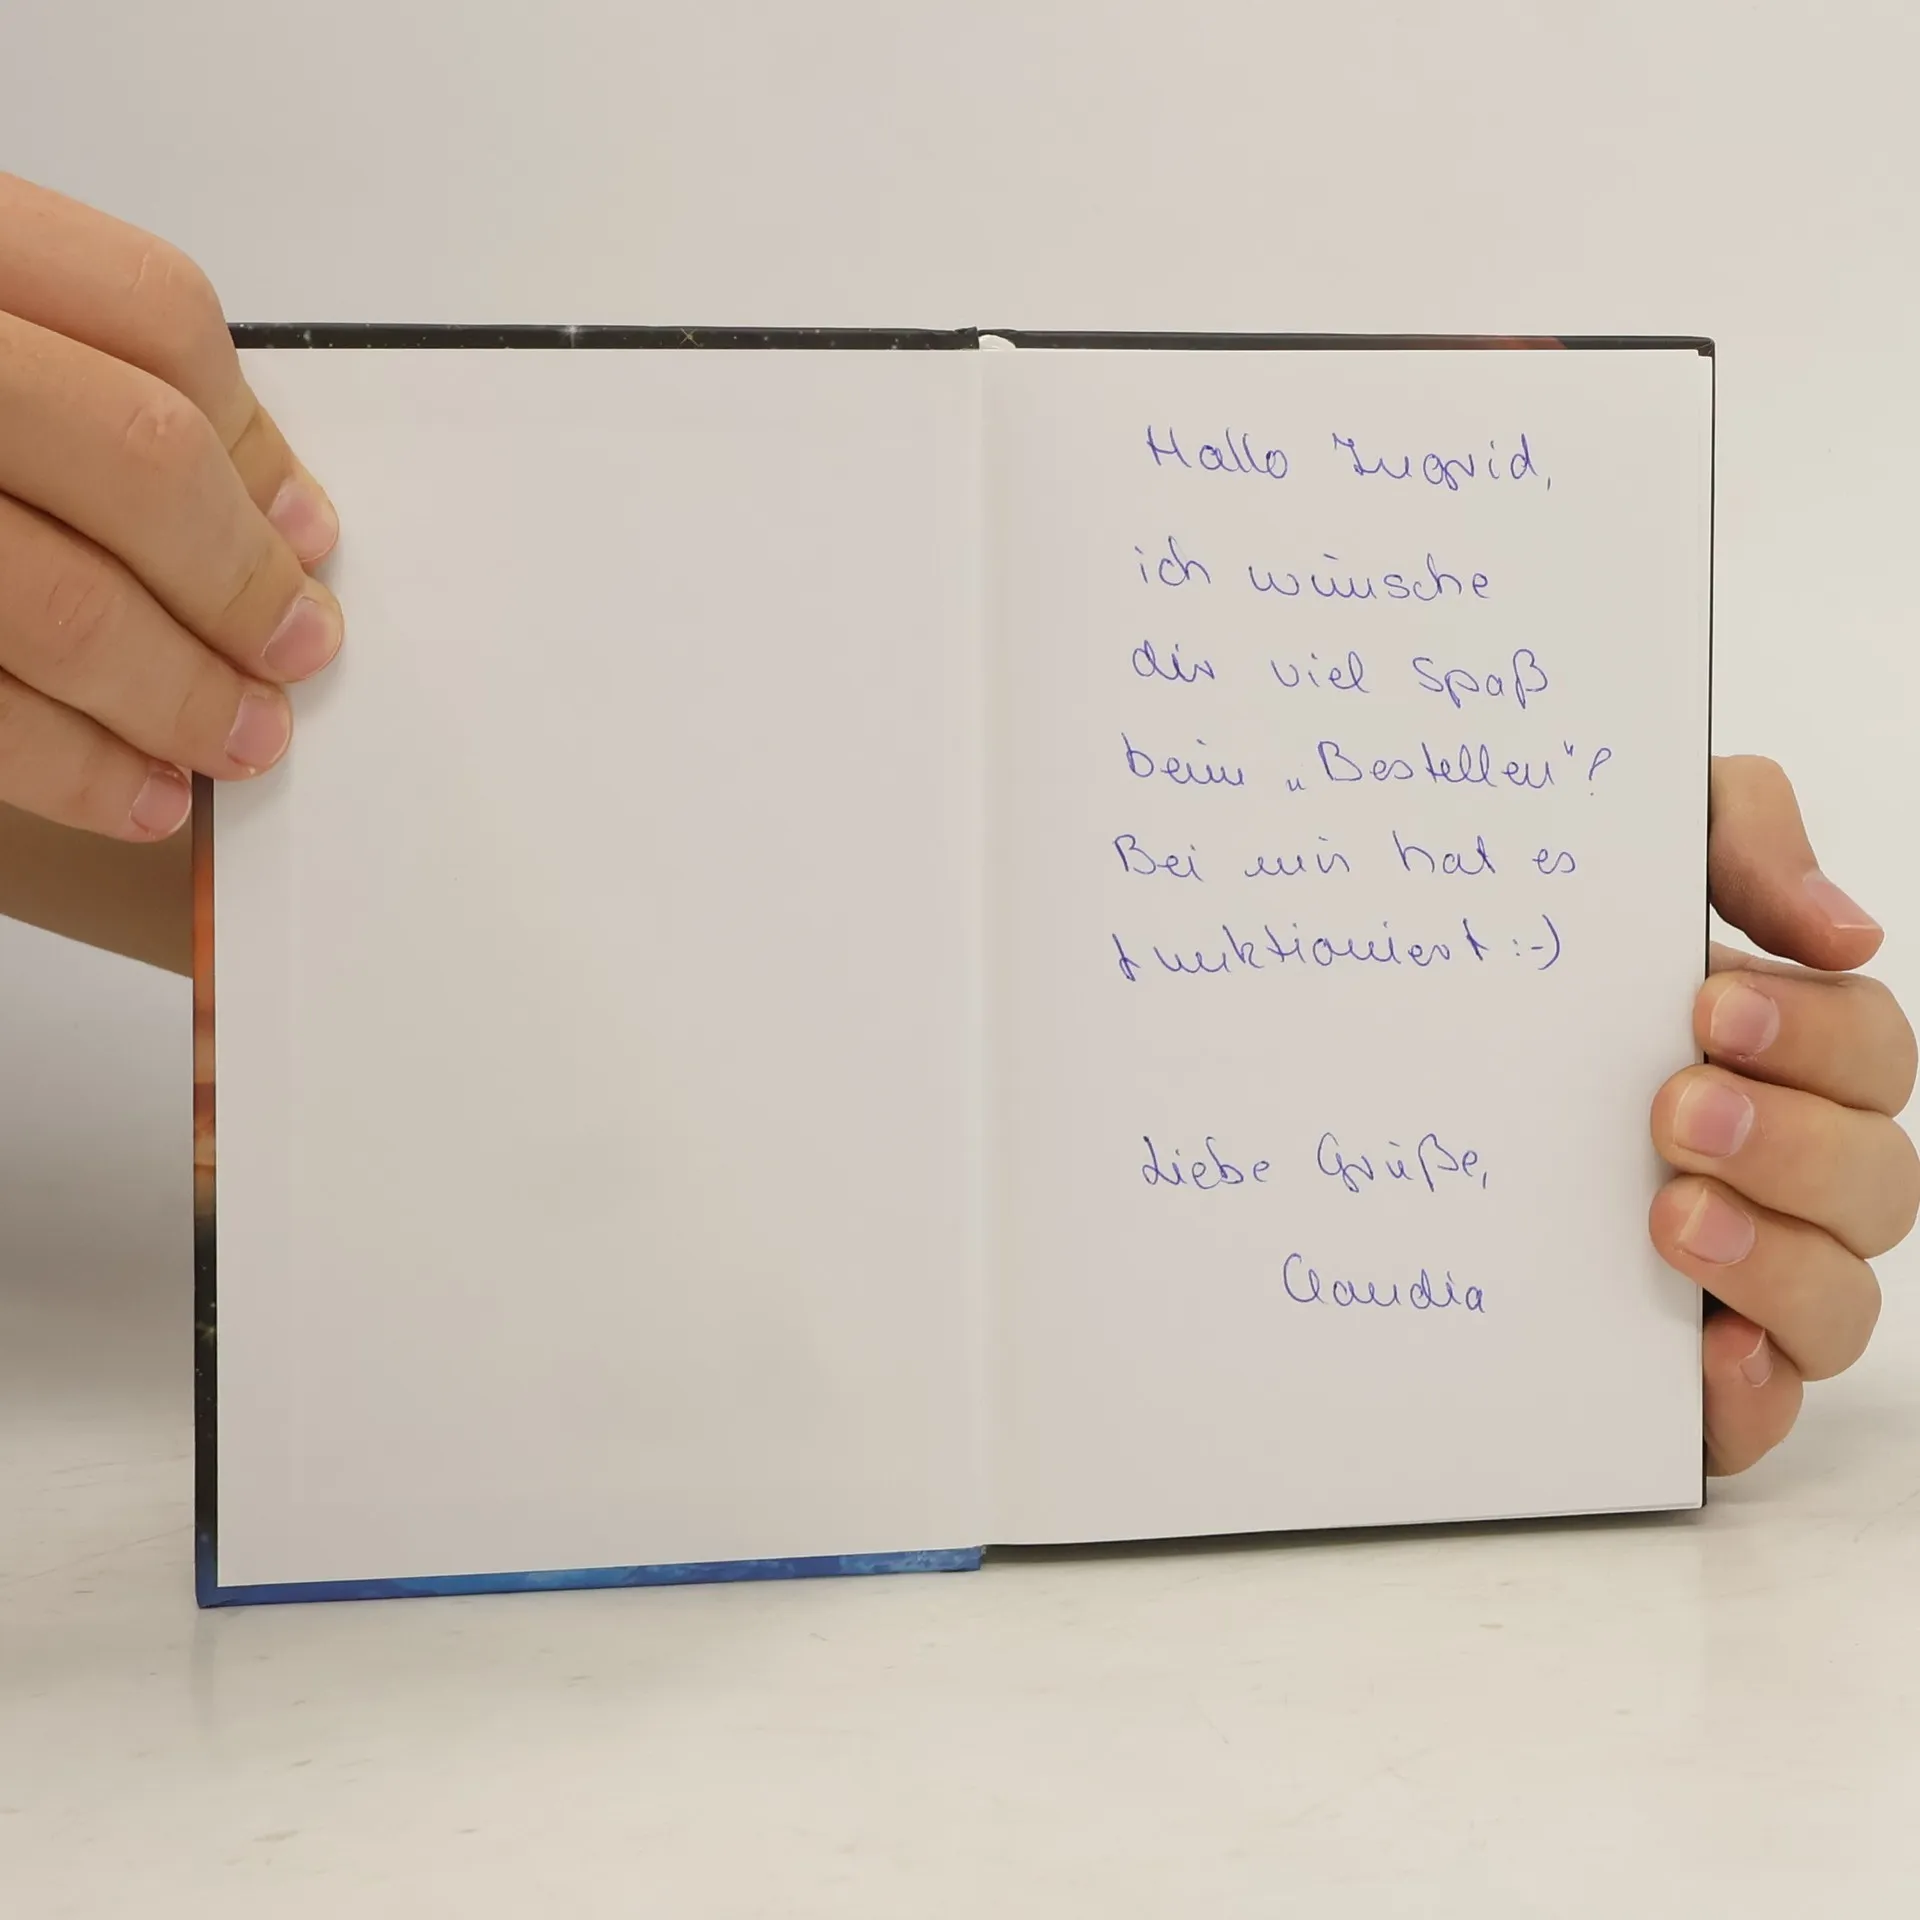 Hallo Ingrid,
ich wünsche
dir viel Spaß
beim „Bestellen"!
Bei mir hat es
funktioniert :-)
Liebe Grüße,
Claudia